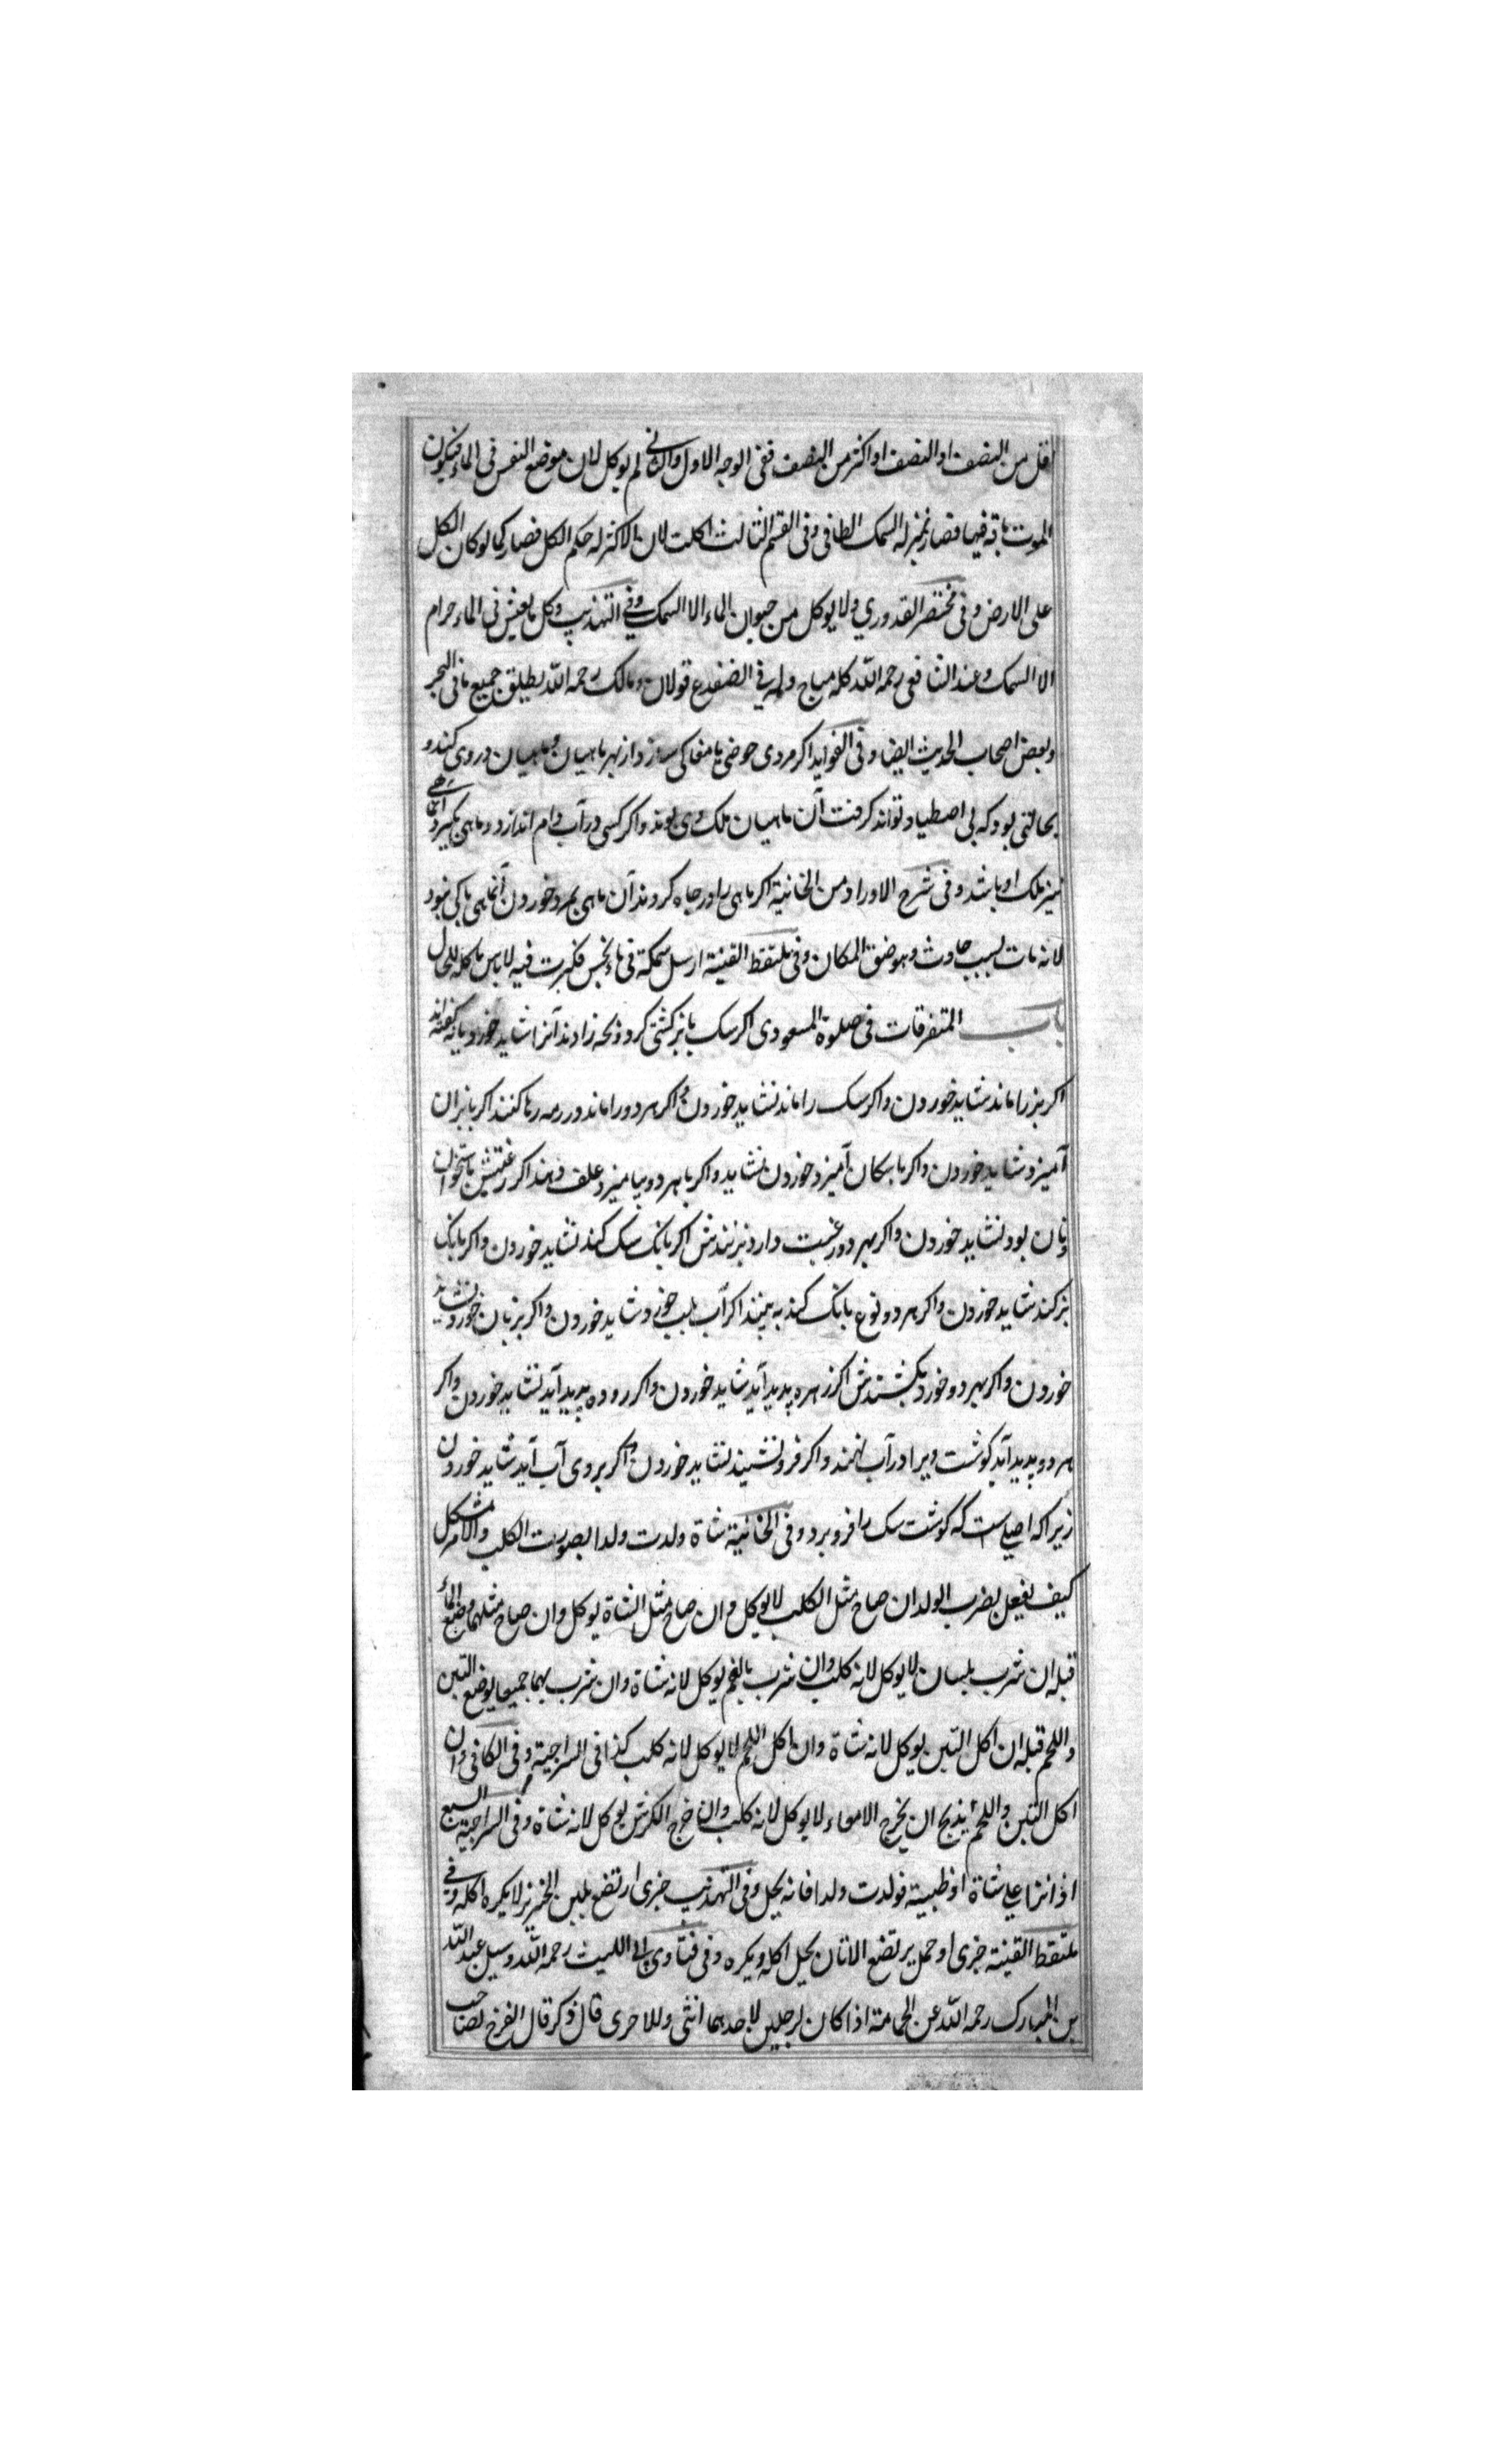 اقل من النصف او النصف او اکثر من النصف ففی الوجه الاول والثانی لم یوکل لان موضع النفس فی الماء فیکون
الموت بآفة فیها فصار بمنزله السمک الطافی وفی القسم الثالث اکلت لان الاکثر له حکم الکل فصار کما لو کان الکل
علی الارض وفی مختصر القدوری ولا یوکل من حیوان الماء الا السمک وفی التهذیب وکل ما یعیش فی الماء حرام
الا السمک وعند الشافعی رحمه الله کله مباح وله فی الضفدع قولان ومالک رحمه الله یطلق جمیع ما فی البحر
وبعض اصحاب الحدیث ایضا وفی الفواید اکر مردی حوضی یا مغاکی سازد از بهر ماهیان وماهیان در وی کند و
بحالتی بود که بی اصطیاد تواند کرفت آن ماهیان ملک وی بوند واکر کسی در آب دام اندازد وماهی بکیرد آن ماهی
نیز ملک او باشد وفی شرح الاوراد من الخانیة اکر ماهی را در چاه کردند آن ماهی بمرد خوردن آنماهی باکی نبود
لانه مات بسبب حادث وهو ضیق المکان وفی ملتقط القنیة ارسل سمکة فی ماء نجس فکبرت فیه لا باس باکله للحال
باب المتفرقات فی صلوة المسعودی اکر سک با بز کشنی کرد وبچه زادند آنرا شاید خورد یا نه کفته اند
اکر بز را ماند شاید خوردن واکر سک را ماند نشاید خوردن واکر هر دو را ماند در رمه رها کنند اکر با بزان
آمیزد شاید خوردن واکر با سکان آمیزد خوردن نشاید واکر با هر دو بیامیزد علف دهند اکر رغبتش باستخوان
ونان بود نشاید خوردن واکر بهر دو رغبت دارد بزنندش اکر بانک سک کند نشاید خوردن واکر بانک
بز کند شاید خوردن واکر هر دو نوع بانک کند به بینند اکر آب بلب خورد شاید خوردن واکر بزبان خورد نشاید
خوردن واکر بهر دو خورد بکشندش اکر زهره پدید آید شاید خوردن واکر روده پدید آید نشاید خوردن واکر
هر دو پدید آید کوشت ویرا در آب نهند واکر فرو نشیند نشاید خوردن واکر بر وی آب آید شاید خوردن
زیرا که اصلی است که کوشت سک را فرو برد وفی الخانیة شاة ولدت ولدا بصورت الکلب والامر مشکل
کیف یفعل یضرب الولد ان صاح مثل الکلب لا یوکل وان صاح مثل الشاة یوکل وان صاح مثلهما وضع الماء
قبله ان شرب بلسان لا یوکل لانه کلب وان شرب بالفم یوکل لانه شاة وان شرب بهما جمیعا یوضع التبن
واللحم قبله ان اکل التبن یوکل لانه شاة وان اکل اللحم لا یوکل لانه کلب کذا فی السراجیة وفی الکافی وان
اکل التبن واللحم یذبح ان یخرج الامعاء لا یوکل لانه کلب وان خرج الکرش یوکل لانه شاة وفی السراجیة السبع
اذا نزا علی شاة او ظبیة فولدت ولدا فانه یحل وفی التهذیب جزی ارتضع بلبن الخنزیر لا یکره اکله وفی
ملتقط القنیة جزی او حمل یرتضع الاتان یحل اکله ویکره وفی فتاوی ابی اللیث رحمه الله وسیل عبد الله
بن المبارک رحمه الله عن الحمامة اذا کان لرجلین لاحدهما انثی وللاخری ذکر قال الفرخ لصاحب